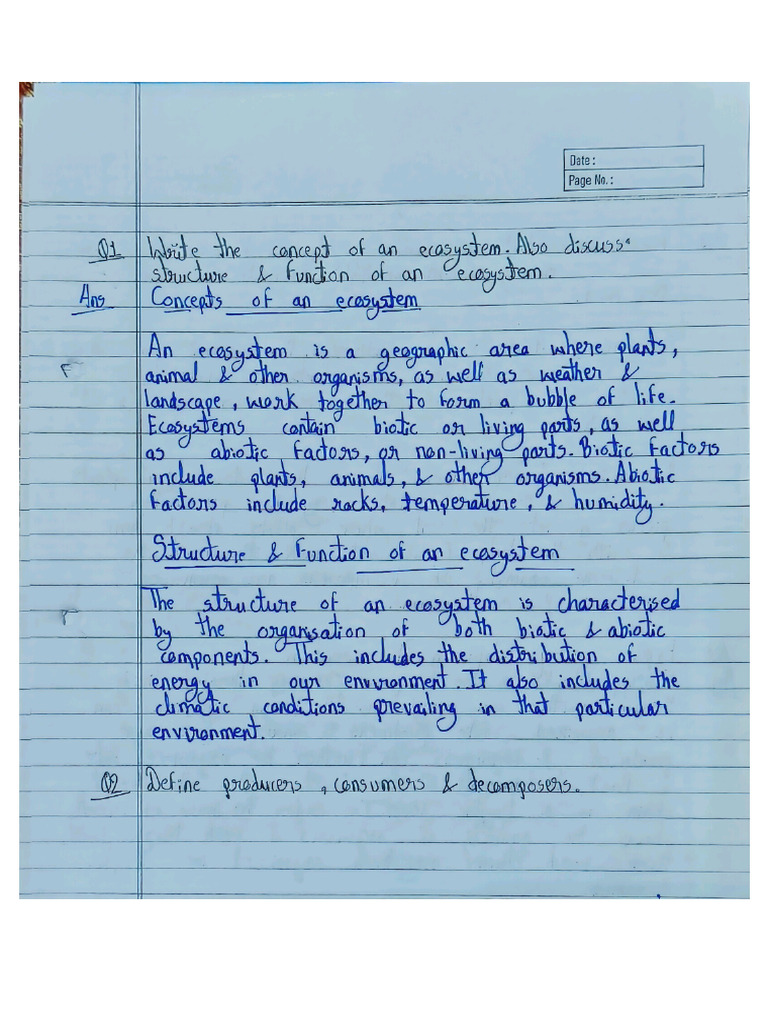 Date :
Page No. :
Q1 Write the concept of an ecosystem. Also discuss
structure & Function of an ecosystem.
Ans Concepts of an ecosystem
An ecosystem is a geographic area where plants,
animal & other organisms, as well as weather &
landscape, work together to form a bubble of life.
Ecosystems contain biotic or living parts, as well
as abiotic factors, or non-living parts. Biotic factors
include plants, animals, & other organisms. Abiotic
factors include rocks, temperature, & humidity.
Structure & Function of an ecosystem
The structure of an ecosystem is characterised
by the organisation of both biotic & abiotic
components. This includes the distribution of
energy in our environment. It also includes the
climatic conditions prevailing in that particular
environment.
Q2 Define producers, consumers & decomposers.